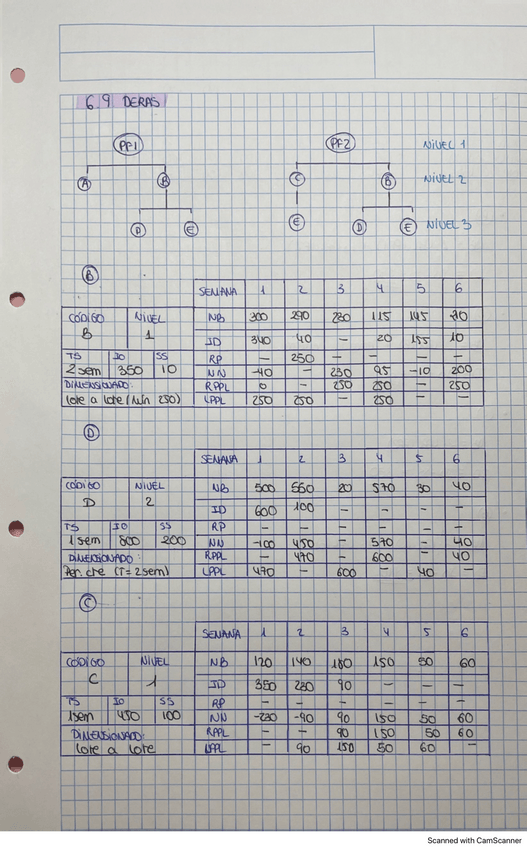 6.9 DERAS
PF1 PF2 NIVEL 1
A B C B NIVEL 2
D E E D E NIVEL 3
B
SEMANA 1 2 3 4 5 6
CÓDIGO NIVEL NB 300 290 230 115 145
B 1 ID 340 40 – 20 155 10
TS IO SS RP – 250 – – – –
2 sem 350 10 NN -40 – 230 95 -10 200
DIMENSIONADO: RPPL 0 – 250 250 – 250
lote a lote (Mín 250) LPPL 250 250 – 250 – –
D
SEMANA 1 2 3 4 5 6
CÓDIGO NIVEL NB 500 550 20 570 30 40
D 2 ID 600 100 – – – –
TS IO SS RP – – – – – –
1 sem 800 200 NN -100 450 – 570 – 40
DIMENSIONADO: RPPL – 470 – 600 – 40
Per. cte (T=2sem) LPPL 470 – 600 – 40 –
C
SEMANA 1 2 3 4 5 6
CÓDIGO NIVEL NB 120 140 180 150 50 60
C 1 ID 350 230 90 – – –
TS IO SS RP – – – – – –
1sem 450 100 NN -230 -90 90 150 50 60
DIMENSIONADO: RPPL – – 90 150 50 60
lote a lote LPPL – 90 150 50 60 –
Scanned with CamScanner